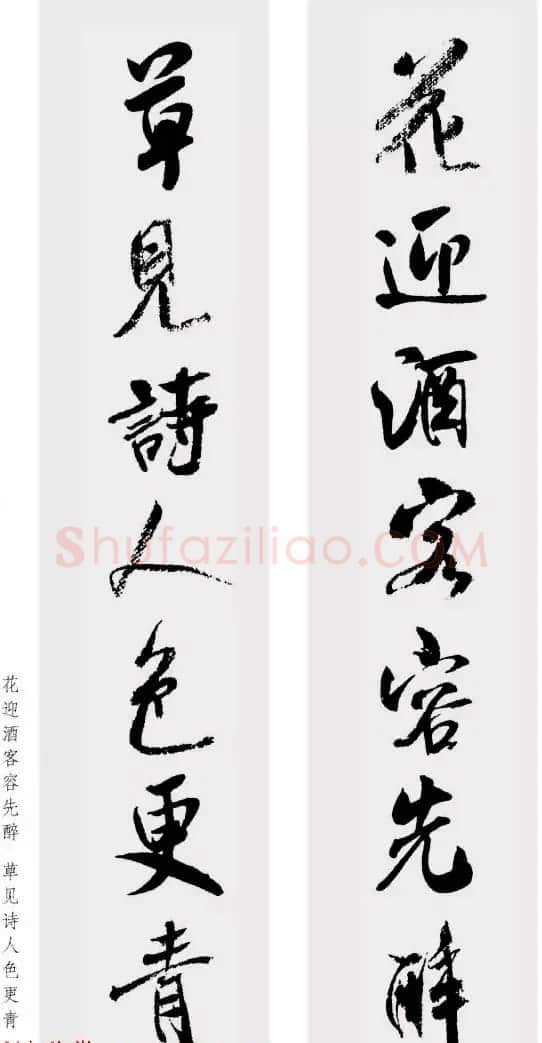 花迎酒客容先醉
草見詩人色更青
花迎酒客容先醉 草见诗人色更青
Shufaziliao.COM